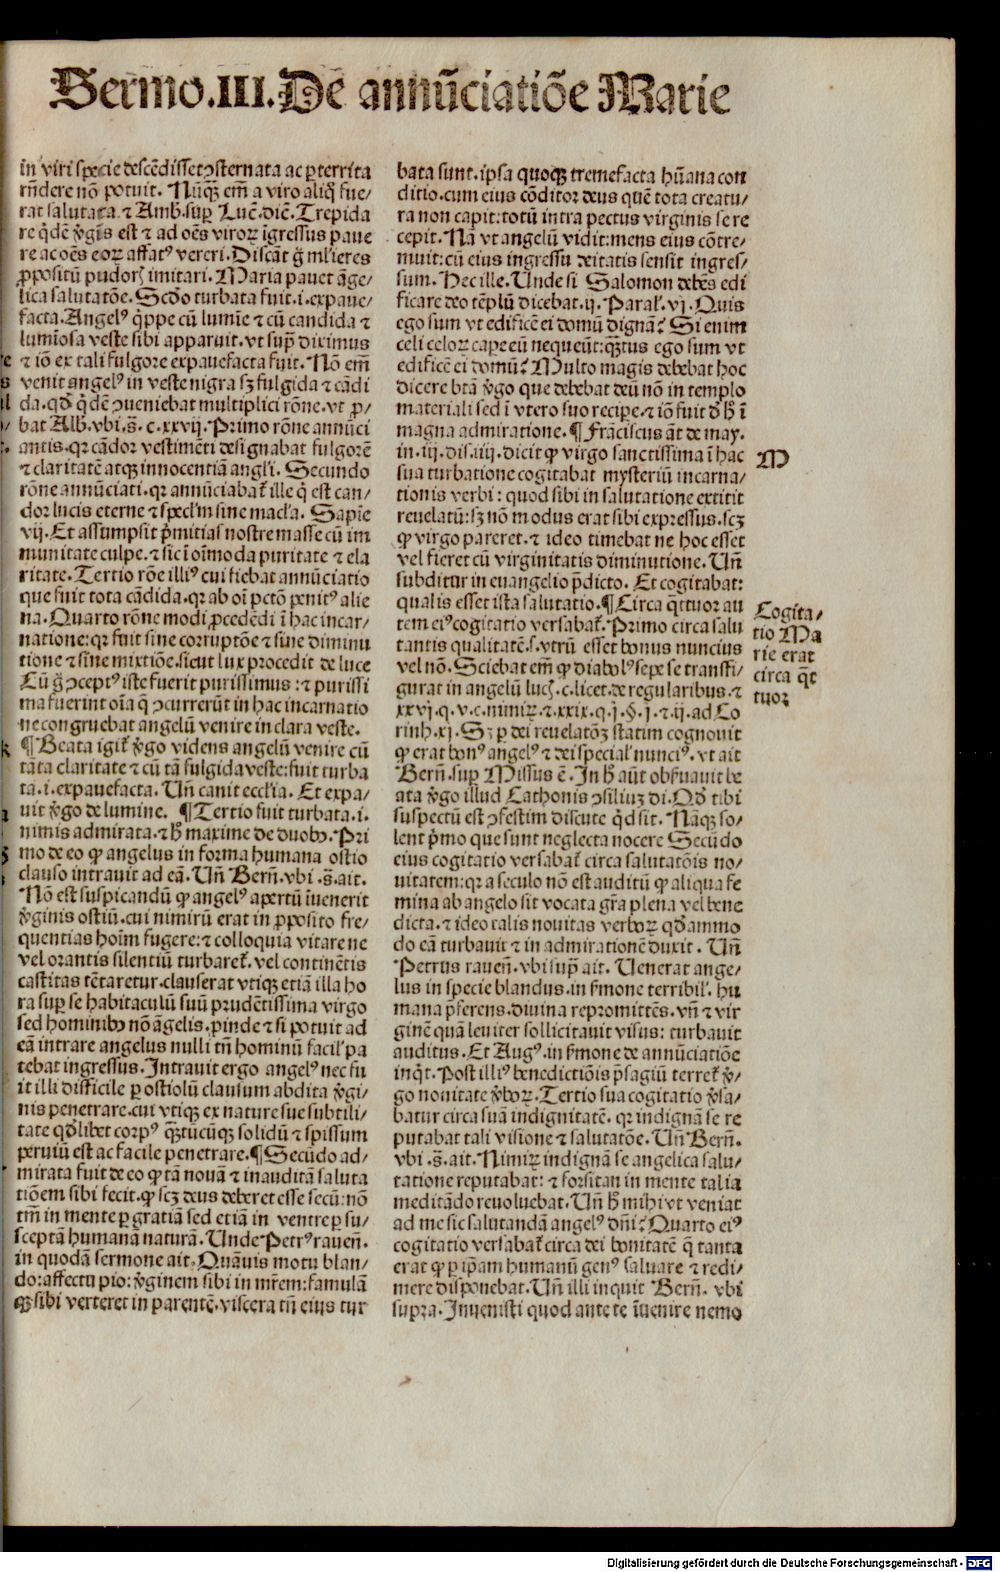 Sermo.III.De annūciatiōe Marie
in viri specie descēdisset ꝯsternata ac ꝑterrita
rn̄dere nō potuit. Nūqꝫ em̄ a viro aliq̄ fue/
rat salutata. ⁊ Amb. suꝑ Luc̄. dic̄. Trepida
re q̇dē v̄gīs est ⁊ ad oēs viroꝝ īgressus paue
re ac oēs eoꝝ affatꝰ vereri. Discāt ḡ ml'ieres
ꝓpositū pudorꝭ imitari. Maria pauet āge/
lica salutatōe. Scd̄o turbata fuit .i. expaue/
facta. Angelꝰ q̇ppe cū lumīe ⁊ cū candida ⁊
lumīosa veste sibi apparuit. vt supͣ diximus
⁊ iō ex tali fulgore expauefacta fuit. Nō em̄
venit angelꝰ in veste nigra sꝫ fulgida ⁊ cādi
da. qd̄ q̇dē ꝯueniebat multiplici rōne. vt ꝓ/
bat Alb. vbi .s̄. c. xxvij. Primo rōne annūci
antis. qꝛ cādor vestimēti designabat fulgorē
⁊ claritatē atqꝫ innocentiā angl'i. Secundo
rōne annūciati. qꝛ annūciabat̄ ille q̇ est can/
dor lucis eterne ⁊ specl'm sine macl'a. Sapīe
vij. Et assumpsit p̄mitias nostre masse cū im
munitate culpe. ⁊ sic ī oīmoda puritate ⁊ cla
ritate. Tertio rōe illiꝰ cui fiebat annūciatio
que fuit tota cādida. qꝛ ab oī pctō penitꝰ alie
na. Quarto rōne modi ꝓcedēdi ī hac incar/
natione: qꝛ fuit sine corruptōe ⁊ sine diminu
tione ⁊ sine mixtiōe. sicut lux procedit de luce
Cū ḡ ꝯceptꝰ iste fuerit purissimus: ⁊ purissi
ma fuerint oīa q̄ ꝯcurrerūt in hac incarnatio
ne congruebat angelū venire in clara veste.
¶ Beata igit̄ v̄go videns angelū venire cū
tāta claritate ⁊ cū tā fulgida veste: fuit turba
ta .i. expauefacta. Vn̄ canit eccl'ia. Et expa/
uit v̄go de lumine. ¶ Tertio fuit turbata .i.
nimis admirata. ⁊ hͦ maxime de duobꝫ. Pri
mo de eo ꝙ angelus in forma humana ostio
clauso intrauit ad eā. Vn̄ Bern̄. vbi .s̄. ait.
Nō est suspicandū ꝙ angelꝰ apertū īuenerit
v̄ginis ostiū. cui nimirū erat in ꝓposito fre/
quentias hoīm fugere: ⁊ colloquia vitare ne
vel orantis silentiū turbaret̄. vel continētis
castitas tētaretur. clauserat vtiqꝫ etiā illa ho
ra suꝑ se habitaculū suū prudētissima virgo
sed hominibꝫ nō āgelis. ꝓinde ⁊ si potuit ad
eā intrare angelus nulli tn̄ hominū facil' pa
tebat ingressus. Intrauit ergo angelꝰ nec fu
it illi difficile ꝑ ostiolū clausum abdita v̄gi/
nis penetrare. cui vtiqꝫ ex nature sue subtili/
tate qd̄libet corpꝰ qͣꝫtūcūqꝫ solidū ⁊ spissum
peruiū est ac facile penetrare. ¶ Secūdo ad/
mirata fuit de eo ꝙ tā nouā ⁊ inauditā saluta
tiōem sibi fecit. ꝙ scꝫ deus deberet esse secū: nō
tm̄ in mente ꝑ gratiā sed etiā in ventre ꝑ su/
sceptā humanā naturā. Unde Petrꝰ rauen̄.
in quodā sermone ait. Quāuis motu blan/
do: affectu pio: v̄ginem sibi in mr̄em: famulā
qꝫ sibi verteret in parentē. viscera tn̄ eius tur
bata sunt. ipsa quoqꝫ tremefacta hūana con
ditio. cum eius cōditor deus quē tota creatu/
ra non capit: totū intra pectus virginis se re
cepit. Nā vt angelū vidit: mens eius cōtre/
muit: cū eius ingressu deitatis sensit ingres/
sum. Hec ille. Unde si Salomon debēs edi
ficare deo tēplū dicebat. ij. Paral'. vj. Quis
ego sum vt edificē ei domū dignā? Si enim
celi celoꝝ capere eū nequeūt: qͣꝫtus ego sum vt
edificē ei domū? Multo magis debebat hoc
dicere btā v̄go que debebat deū nō in templo
materiali sed ī vtero suo recipe. ⁊ iō fuit d̄ hͦ ī
magna admiratione. ¶ Frāciscus āt de may.
in .iij. dis. iiij. dicit ꝙ virgo sanctissima ī hac
sua turbatione cogitabat mysteriū incarna/
tionis verbi: quod sibi in salutatione extitit
reuelatū: sꝫ nō modus erat sibi expressus. scꝫ
ꝙ virgo pareret. ⁊ ideo timebat ne hoc esset
vel fieret cū virginitatis diminutione. Vn̄
subditur in euangelio p̄dicto. Et cogitabat:
qualis esset ista salutatio. ¶ Circa qͣttuor au
tem eiꝰ cogitatio versabat̄. Primo circa salu
tantis qualitatē .s. vtrū esset bonus nuncius
vel nō. Sciebat em̄ ꝙ diabolꝰ sepe se transfi/
gurat in angelū lucꝭ. c. licet. de regularibus. ⁊
xxvj. q. v. c. nimiꝝ. ⁊ .xxix. q. j. §. j. ⁊ ij. ad Co
rinth. xj. Sꝫ ꝑ dei reuelatōꝫ statim cognouit
ꝙ erat bonꝰ angelꝰ ⁊ dei special' nunciꝰ. vt ait
Bern̄. suꝑ Missus ē. In hͦ aūt obseruauit be
ata v̄go illud Cathonis ꝯsiliuꝫ di. Qd̄ tibi
suspectū est ꝯfestim discute q̇d sit. Nāqꝫ so/
lent p̄mo que sunt neglecta nocere Secūdo
eius cogitatio versabat̄ circa salutatōis no/
uitatem: qꝛ a seculo nō est auditū ꝙ aliqua fe
mina ab angelo sit vocata gr̄a plena vel bene
dicta. ⁊ ideo talis nouitas verboꝝ qd̄ammo
do eā turbauit ⁊ in admirationē duxit. Vn̄
Petrus rauen̄. vbi supͣ ait. Uenerat ange/
lus in specie blandus. in s̄mone terribil'. hu
mana p̄ferens. diuina repromittēs. vn̄ ⁊ vir
ginē quā leuiter sollicitauit visus: turbauit
auditus. Et Augꝰ. in s̄mone de annūciatiōe
inq̇t. Post illiꝰ benedictiōis p̄sagiū terret̄ v̄/
go nouitate v̄boꝝ. Tertio sua cogitatio v̄sa/
batur circa suā indignitatē. qꝛ indignā se re
putabat tali visione ⁊ salutatōe. Vn̄ Bern̄.
vbi .s̄. ait. Nimiꝝ indignā se angelica salu/
tatione reputabat: ⁊ forsitan in mente talia
meditādo reuoluebat. Vn̄ hͦ mihi vt veniat
ad me sic salutandā angelꝰ dn̄i? Quarto eiꝰ
cogitatio versabat̄ circa dei bonitatē q̄ tanta
erat ꝙ ꝑ ip̄am humanū genꝰ saluare ⁊ redi/
mere disponebat. Vn̄ illi inquit Bern̄. vbi
supra. Inuenisti quod ante te īuenire nemo
M
Cogita/
tio Ma
rie erat
circa qͣt
tuoꝛ
Digitalisierung gefördert durch die Deutsche Forschungsgemeinschaft - DFG